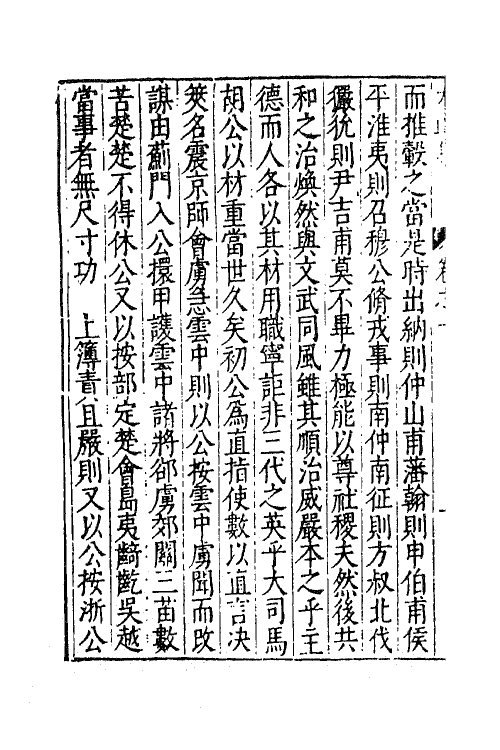 而推轂之當是時出納則仲山甫藩翰則申伯甫侯
平淮夷則召穆公脩戎事則南仲南征則方叔北伐
玁狁則尹吉甫莫不畢力極能以尊社稷夫然後共
和之治煥然與文武同風雖其順治威嚴本之乎主
德而人各以其材用職寧詎非三代之英乎大司馬
胡公以材重當世久矣初公為直指使數以直言决
筴名震京師會虜急雲中則以公按雲中虜聞而改
謀由薊門入公擐甲護雲中諸將卻虜郊關三苗數
苦楚楚不得休公又以按部定楚會島夷齮齕吳越
當事者無尺寸功　上簿責且嚴則又以公按浙公